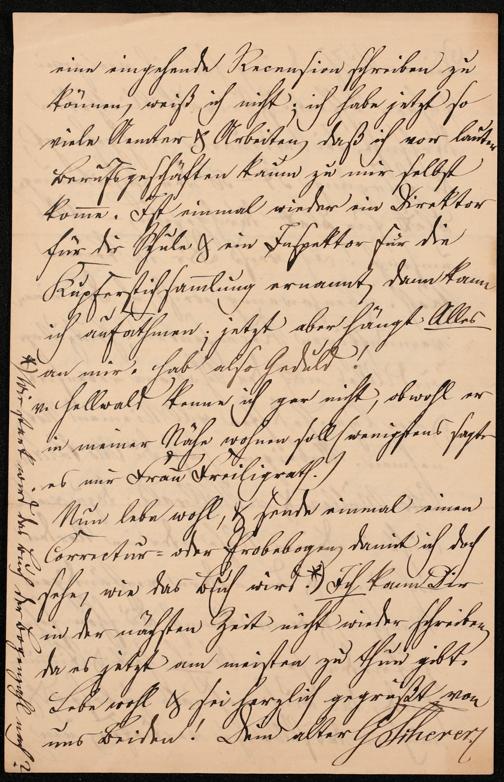 eine eingehende Recension schreiben zu
können, weiß ich nicht; ich habe jetzt so
viele Aemter & Arbeiten, daß ich vor lauter
Berufsgeschäften kaum zu mir selbst
komme. Ist einmal wieder ein Direktor
für die Schule & ein Inspektor für die
Kupferstichsammlung ernannt, dann kann
ich aufathmen; jetzt aber hängt Alles
an mir. hab also Geduld!
v. Hellwald kenne ich gar nicht, obwohl er
in meiner Nähe wohnen soll, wenigstens sagte
es mir Frau Freiligrath.
Nun lebe wohl, & sende einmal einen
Correctur- oder Probebogen, damit ich doch
sehe, wie das Buch wird.*) Ich kann Dir
in der nächsten Zeit nicht wieder schreiben,
da es jetzt am meisten zu thun gibt.
Lebe wohl & sei herzlich gegrüßt von
uns beiden! Dein alter G Scherer
*) Wie stark wird das Buch der Bogenzahl nach?